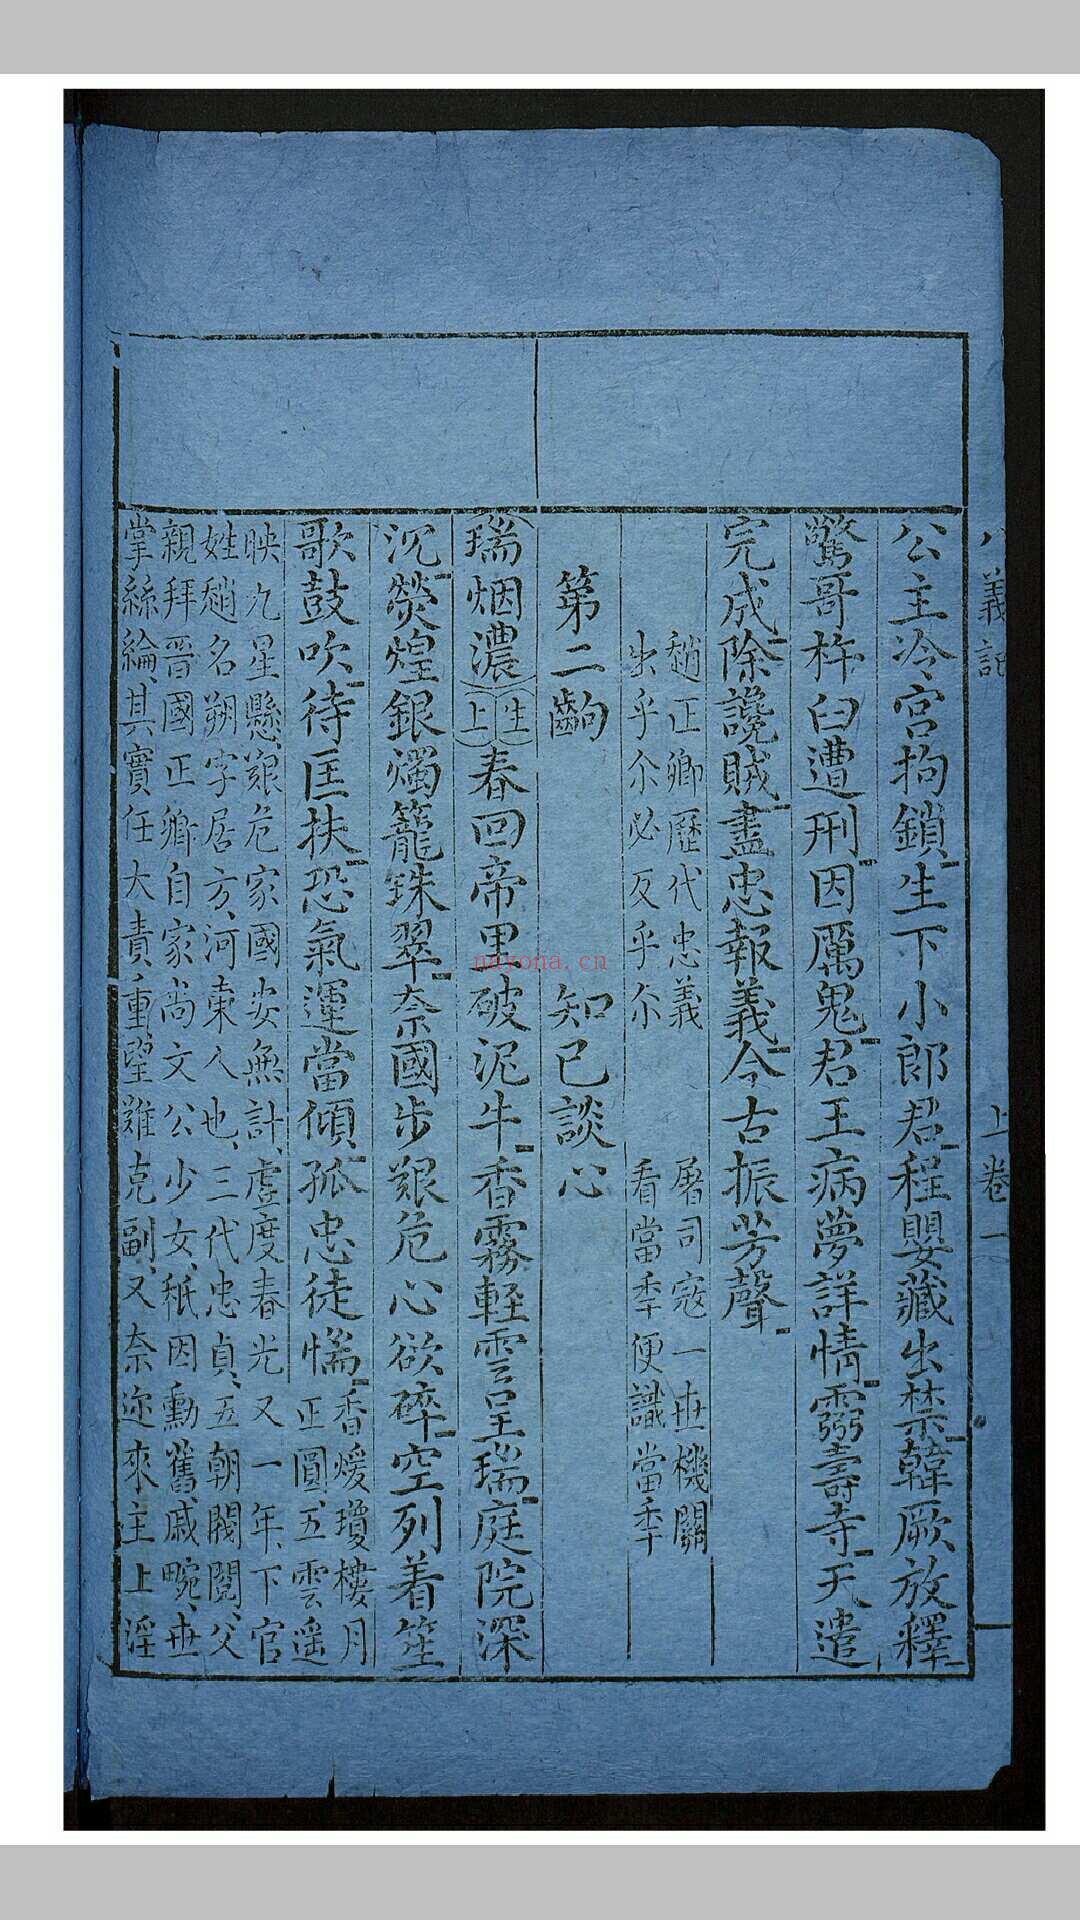 八義記
上卷一
公主冷宮拘鎖生下小郎君程嬰藏出禁韓厥放釋
驚哥杵臼遭刑因厲鬼君王病夢詳情靈壽寺天遣
完成除讒賊盡忠報義今古振芳聲
趙正卿歷代忠義 屠司寇一世機關
出乎尒必反乎尒 看當秊便識當秊
第二齣 知己談心
瑞烟濃
生上
春回帝里破泥牛香霧輕雲呈瑞庭院深
沉熒煌銀燭籠銖翠奈國步艱危心欲碎空列着笙
歌鼓吹待匡扶恐氣運當傾孤忠徒惴
香煖瓊樓月
正圓五雲遥
映九星懸艱危家國安無計虛度春光又一年下官
姓趙名朔字居方河東人也三代忠貞五朝閥閱父
親拜晉國正卿自家尚文公少女秖因勳舊戚畹世
掌絲綸其實任大責重望難克副又奈迩來主上淫
nayona.cn